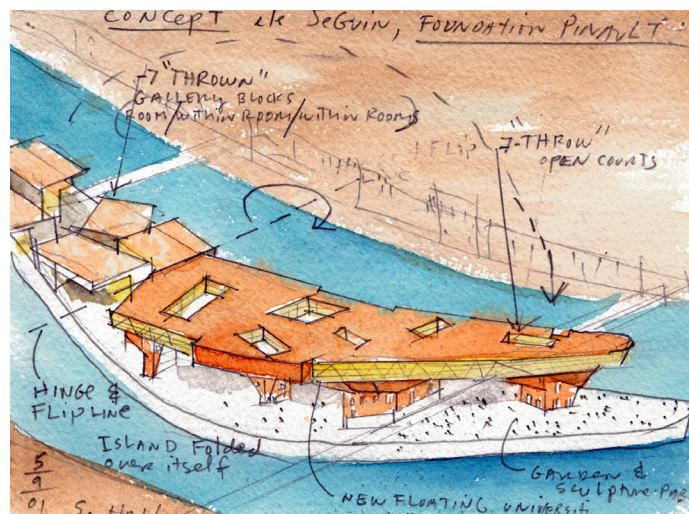 CONCEPT ile SEGUIN, FOUNDATION PINAULT:
-7 "THROWN"
GALLERY BLOCKS
(ROOM/WITHIN ROOM/WITHIN ROOMS)
7-"THROW"
OPEN COURTS
FLIP
LINE
HINGE &
FLIP LINE
ISLAND FOLDED
over itself
GARDEN &
Sculpture-PAR
NEW FLOATING UNIVERSIT
5
9
01
S. Holl